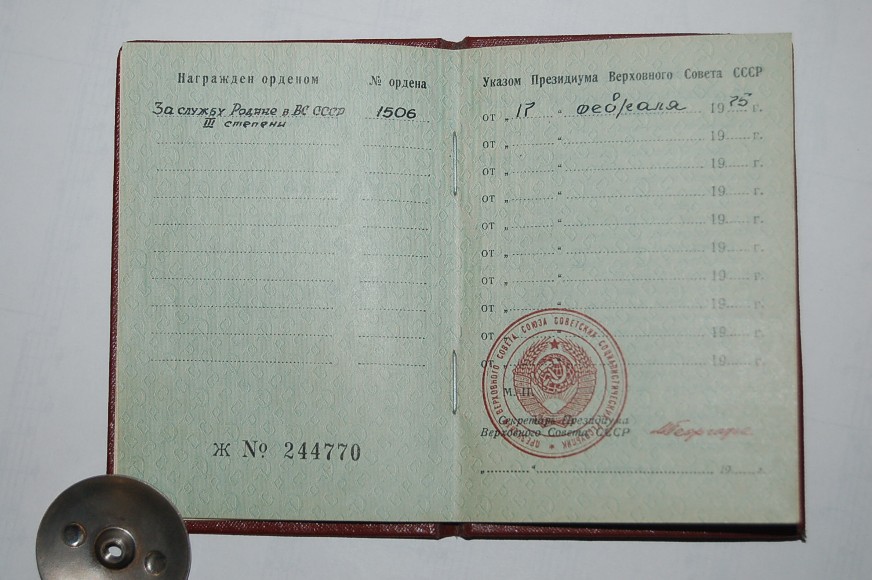 Награжден орденом № ордена
За службу Родине в ВС СССР 1506
III степени
Ж № 244770
Указом Президиума Верховного Совета СССР
от „17 “ февраля 1975 г.
от „ “ 19 г.
от „ “ 19 г.
от „ “ 19 г.
от „ “ 19 г.
от „ “ 19 г.
от „ “ 19 г.
от „ “ 19 г.
от „ “ 19 г.
от „ “ 19 г.
М. П.
Секретарь Президиума
Верховного Совета СССР
„ “ 19 г.
ВЕРХОВНОГО СОВЕТА СОЮЗА СОВЕТСКИХ СОЦИАЛИСТИЧЕСКИХ